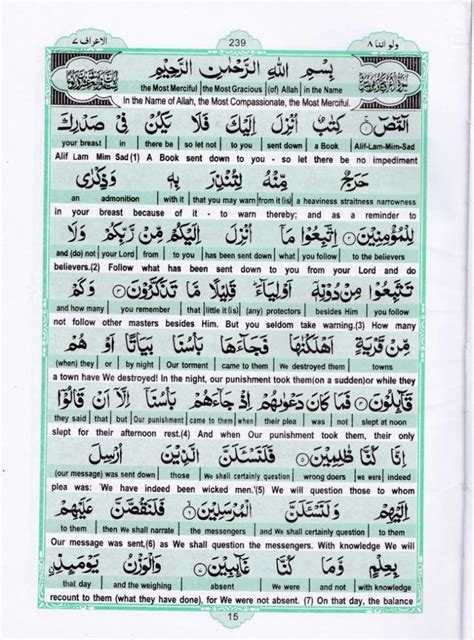 الاعراف ۷ 239 ولو اننا ۸
بِسْمِ اللهِ الرَّحْمٰنِ الرَّحِيْمِ
the Most Merciful | the Most Gracious | (of) Allah | in the Name
In the Name of Allah, the Most Compassionate, the Most Merciful.
الٓمّٓصٓ ۚ كِتٰبٌ اُنْزِلَ اِلَيْكَ فَلَا يَكُنْ فِيْ صَدْرِكَ
your breast | in | there be | so let not | to you | sent down | a Book | Alif-Lam-Mim-Sad
Alif Lam Mim Sad(1) A Book sent down to you - so let there be no impediment
حَرَجٌ مِّنْهُ لِتُنْذِرَ بِهٖ وَذِكْرٰى
an admonition | with it | that you may warn | from it | (is) a heaviness straitness narrowness
in your breast because of it - to warn thereby; and as a reminder to
لِلْمُؤْمِنِيْنَ اِتَّبِعُوْا مَآ اُنْزِلَ اِلَيْكُمْ مِّنْ رَّبِّكُمْ وَلَا
and (do) not | your Lord | from | to you | has been sent down | what | you follow | to the believers
believers.(2) Follow what has been sent down to you from your Lord and do
تَتَّبِعُوْا مِنْ دُوْنِهٖٓ اَوْلِيَآءَ ۭ قَلِيْلًا مَّا تَذَكَّرُوْنَ وَكَمْ
and how many | you remember | that | little it (is) | (any) protectors | besides Him | you follow
not follow other masters besides Him. But you seldom take warning.(3) How many
مِّنْ قَرْيَةٍ اَهْلَكْنٰهَا فَجَآءَهَا بَاْسُنَا بَيَاتًا اَوْ هُمْ
(when) they | or | by night | Our torment | came to them | We destroyed them | towns
a town have We destroyed! In the night, our punishment took them(on a sudden)or while they
قَآئِلُوْنَ فَمَا كَانَ دَعْوٰىهُمْ اِذْ جَآءَهُمْ بَاْسُنَآ اِلَّآ اَنْ قَالُوْٓا
they said | that | but | Our punishment | came to them | when | their plea | was | not | slept at noon
slept for their afternoon rest.(4) And when Our punishment took them, their only
اِنَّا كُنَّا ظٰلِمِيْنَ فَلَنَسْـَٔلَنَّ الَّذِيْنَ اُرْسِلَ
(our message) was sent down | those | We shall certainly question | wrong doers | we were | indeed
plea was: 'We have indeed been wicked men.'(5) We will question those to whom
اِلَيْهِمْ وَلَنَسْـَٔلَنَّ الْمُرْسَلِيْنَ فَلَنَقُصَّنَّ عَلَيْهِمْ
to them | then We shall narrate | the messengers | and We shall certainly question | to them
Our message was sent,(6) as We shall question the messengers. With knowledge We will
بِعِلْمٍ وَّمَا كُنَّا غَآئِبِيْنَ وَالْوَزْنُ يَوْمَئِذِ
that day | and the weighing | absent | We were | and not | with knowledge
recount to them (what they have done), for We were not absent. (7) On that day, the balance
15